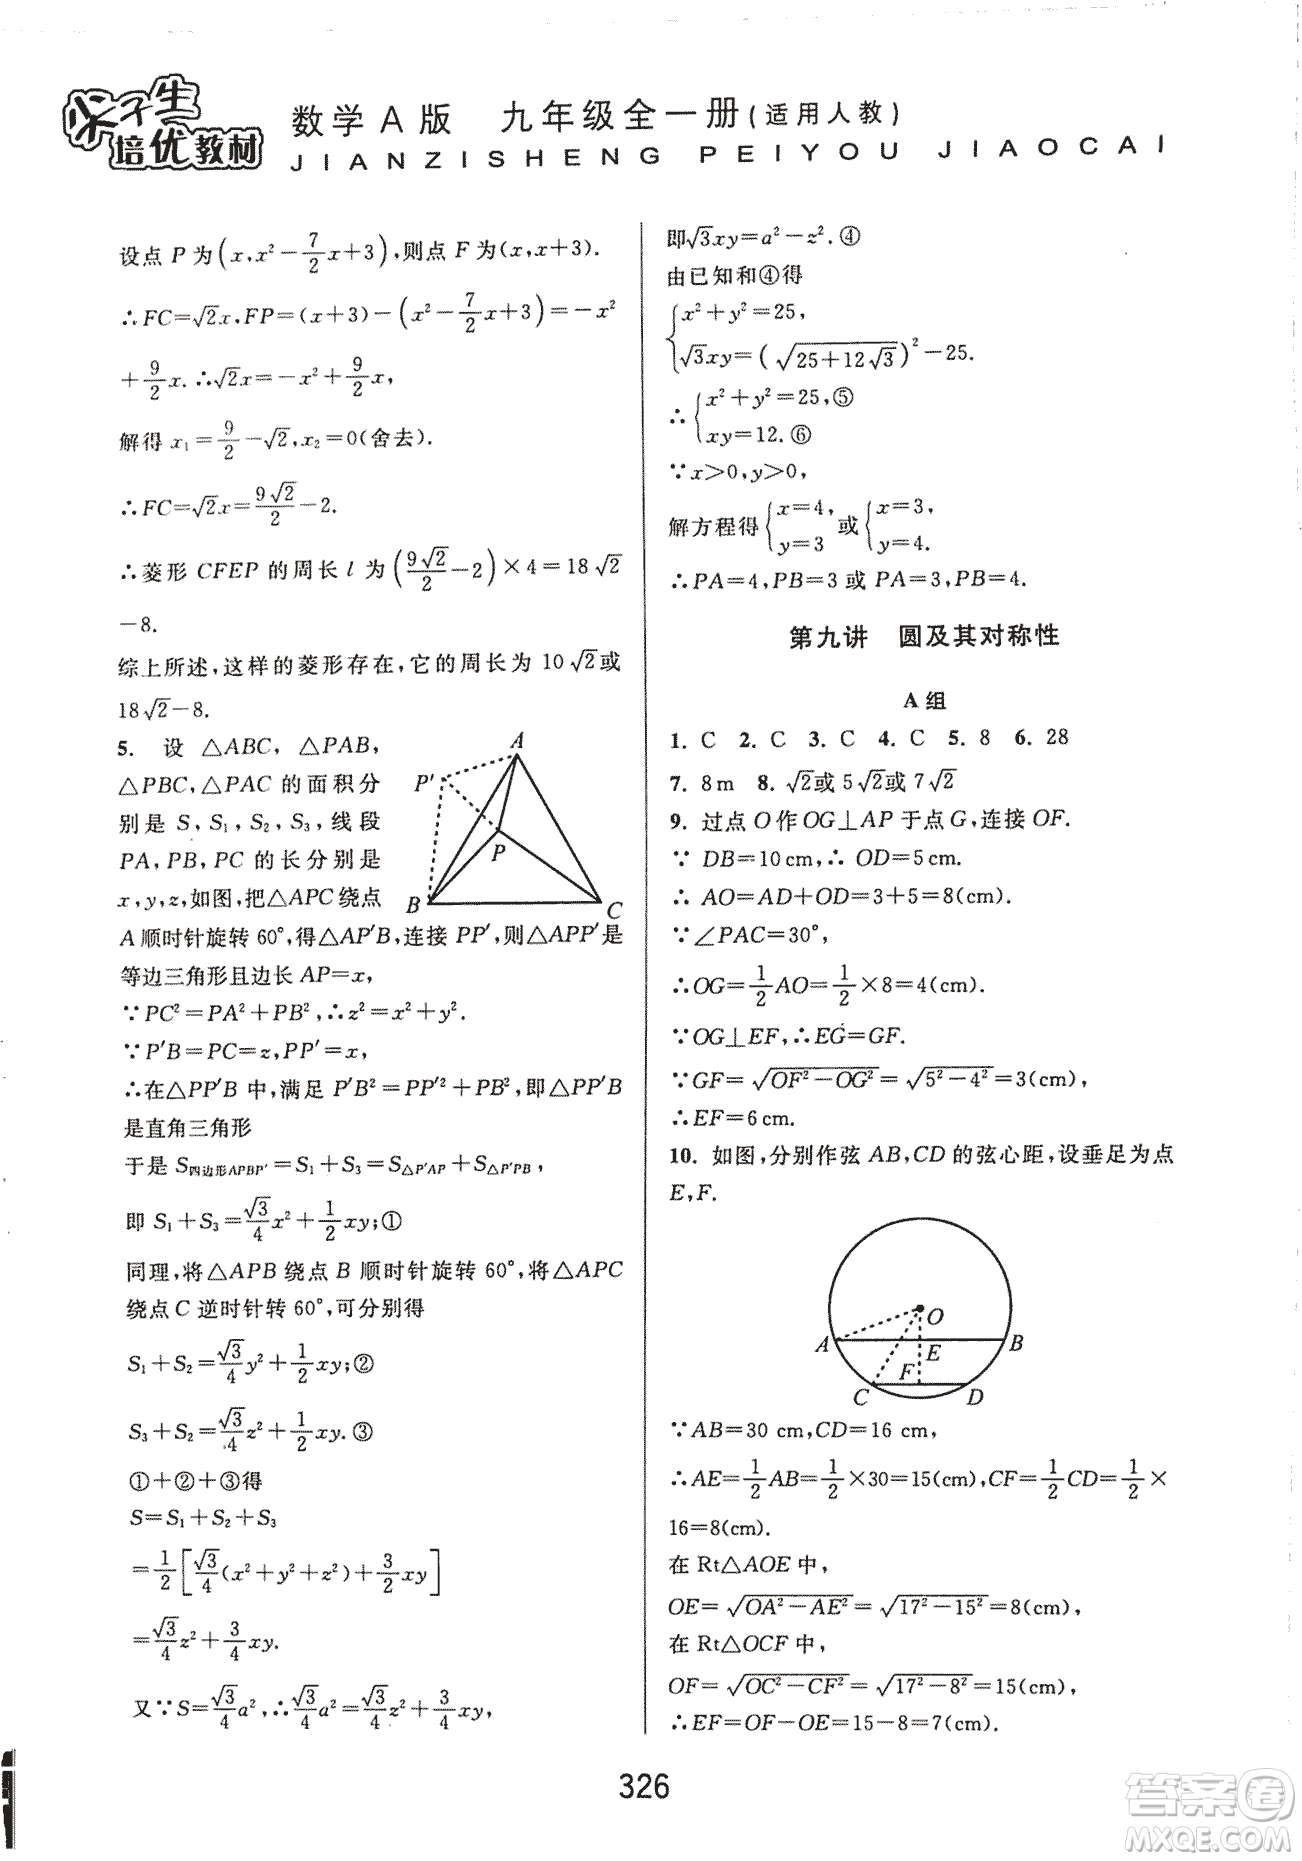 尖子生
培优教材
数学A版 九年级全一册(适用人教)
JIANZISHENG PEIYOU JIAOCAI
设点 P 为(x,x²−7/2x+3),则点 F 为(x,x+3).
∴FC=√2x,FP=(x+3)−(x²−7/2x+3)=−x²
+9/2x.∴√2x=−x²+9/2x,
解得 x₁=9/2−√2,x₂=0(舍去).
∴FC=√2x=9√2/2−2.
∴菱形 CFEP 的周长 l 为(9√2/2−2)×4=18√2
−8.
综上所述,这样的菱形存在,它的周长为 10√2或
18√2−8.
5. 设 △ABC, △PAB,
△PBC,△PAC 的面积分
别是 S, S₁, S₂, S₃, 线段
PA, PB, PC 的长分别是
x,y,z,如图,把△APC绕点
A顺时针旋转 60°,得△AP′B,连接 PP′,则△APP′是
等边三角形且边长 AP=x,
∵PC²=PA²+PB²,∴z²=x²+y².
∵P′B=PC=z,PP′=x,
∴在△PP′B 中,满足 P′B²=PP′²+PB²,即△PP′B
是直角三角形
于是 S四边形APBP′=S₁+S₃=S△P′AP+S△P′PB,
即 S₁+S₃=√3/4x²+1/2xy;①
同理,将△APB 绕点 B 顺时针旋转 60°,将△APC
绕点 C 逆时针转 60°,可分别得
S₁+S₂=√3/4y²+1/2xy;②
S₃+S₂=√3/4z²+1/2xy.③
①+②+③得
S=S₁+S₂+S₃
=1/2[√3/4(x²+y²+z²)+3/2xy]
=√3/4z²+3/4xy.
又∵S=√3/4a²,∴√3/4a²=√3/4z²+3/4xy,
A
P′
P
B
C
即√3xy=a²−z².④
由已知和④得
{x²+y²=25,
√3xy=(√25+12√3)²−25.
∴{x²+y²=25,⑤
xy=12.⑥
∵x>0,y>0,
解方程得{x=4, y=3 或{x=3, y=4.
∴PA=4,PB=3 或 PA=3,PB=4.
第九讲 圆及其对称性
A 组
1. C 2. C 3. C 4. C 5. 8 6. 28
7. 8 m 8. √2或 5√2或 7√2
9. 过点 O 作 OG⊥AP 于点 G,连接 OF.
∵ DB=10 cm,∴ OD=5 cm.
∴ AO=AD+OD=3+5=8(cm).
∵∠PAC=30°,
∴OG=1/2AO=1/2×8=4(cm).
∵OG⊥EF,∴EG=GF.
∵GF=√OF²−OG²=√5²−4²=3(cm),
∴EF=6 cm.
10. 如图,分别作弦 AB,CD 的弦心距,设垂足为点
E,F.
O
A
E
B
F
C
D
∵AB=30 cm,CD=16 cm,
∴AE=1/2AB=1/2×30=15(cm),CF=1/2CD=1/2×
16=8(cm).
在 Rt△AOE 中,
OE=√OA²−AE²=√17²−15²=8(cm),
在 Rt△OCF 中,
OF=√OC²−CF²=√17²−8²=15(cm),
∴EF=OF−OE=15−8=7(cm).
326
答案圈
MXQE.COM